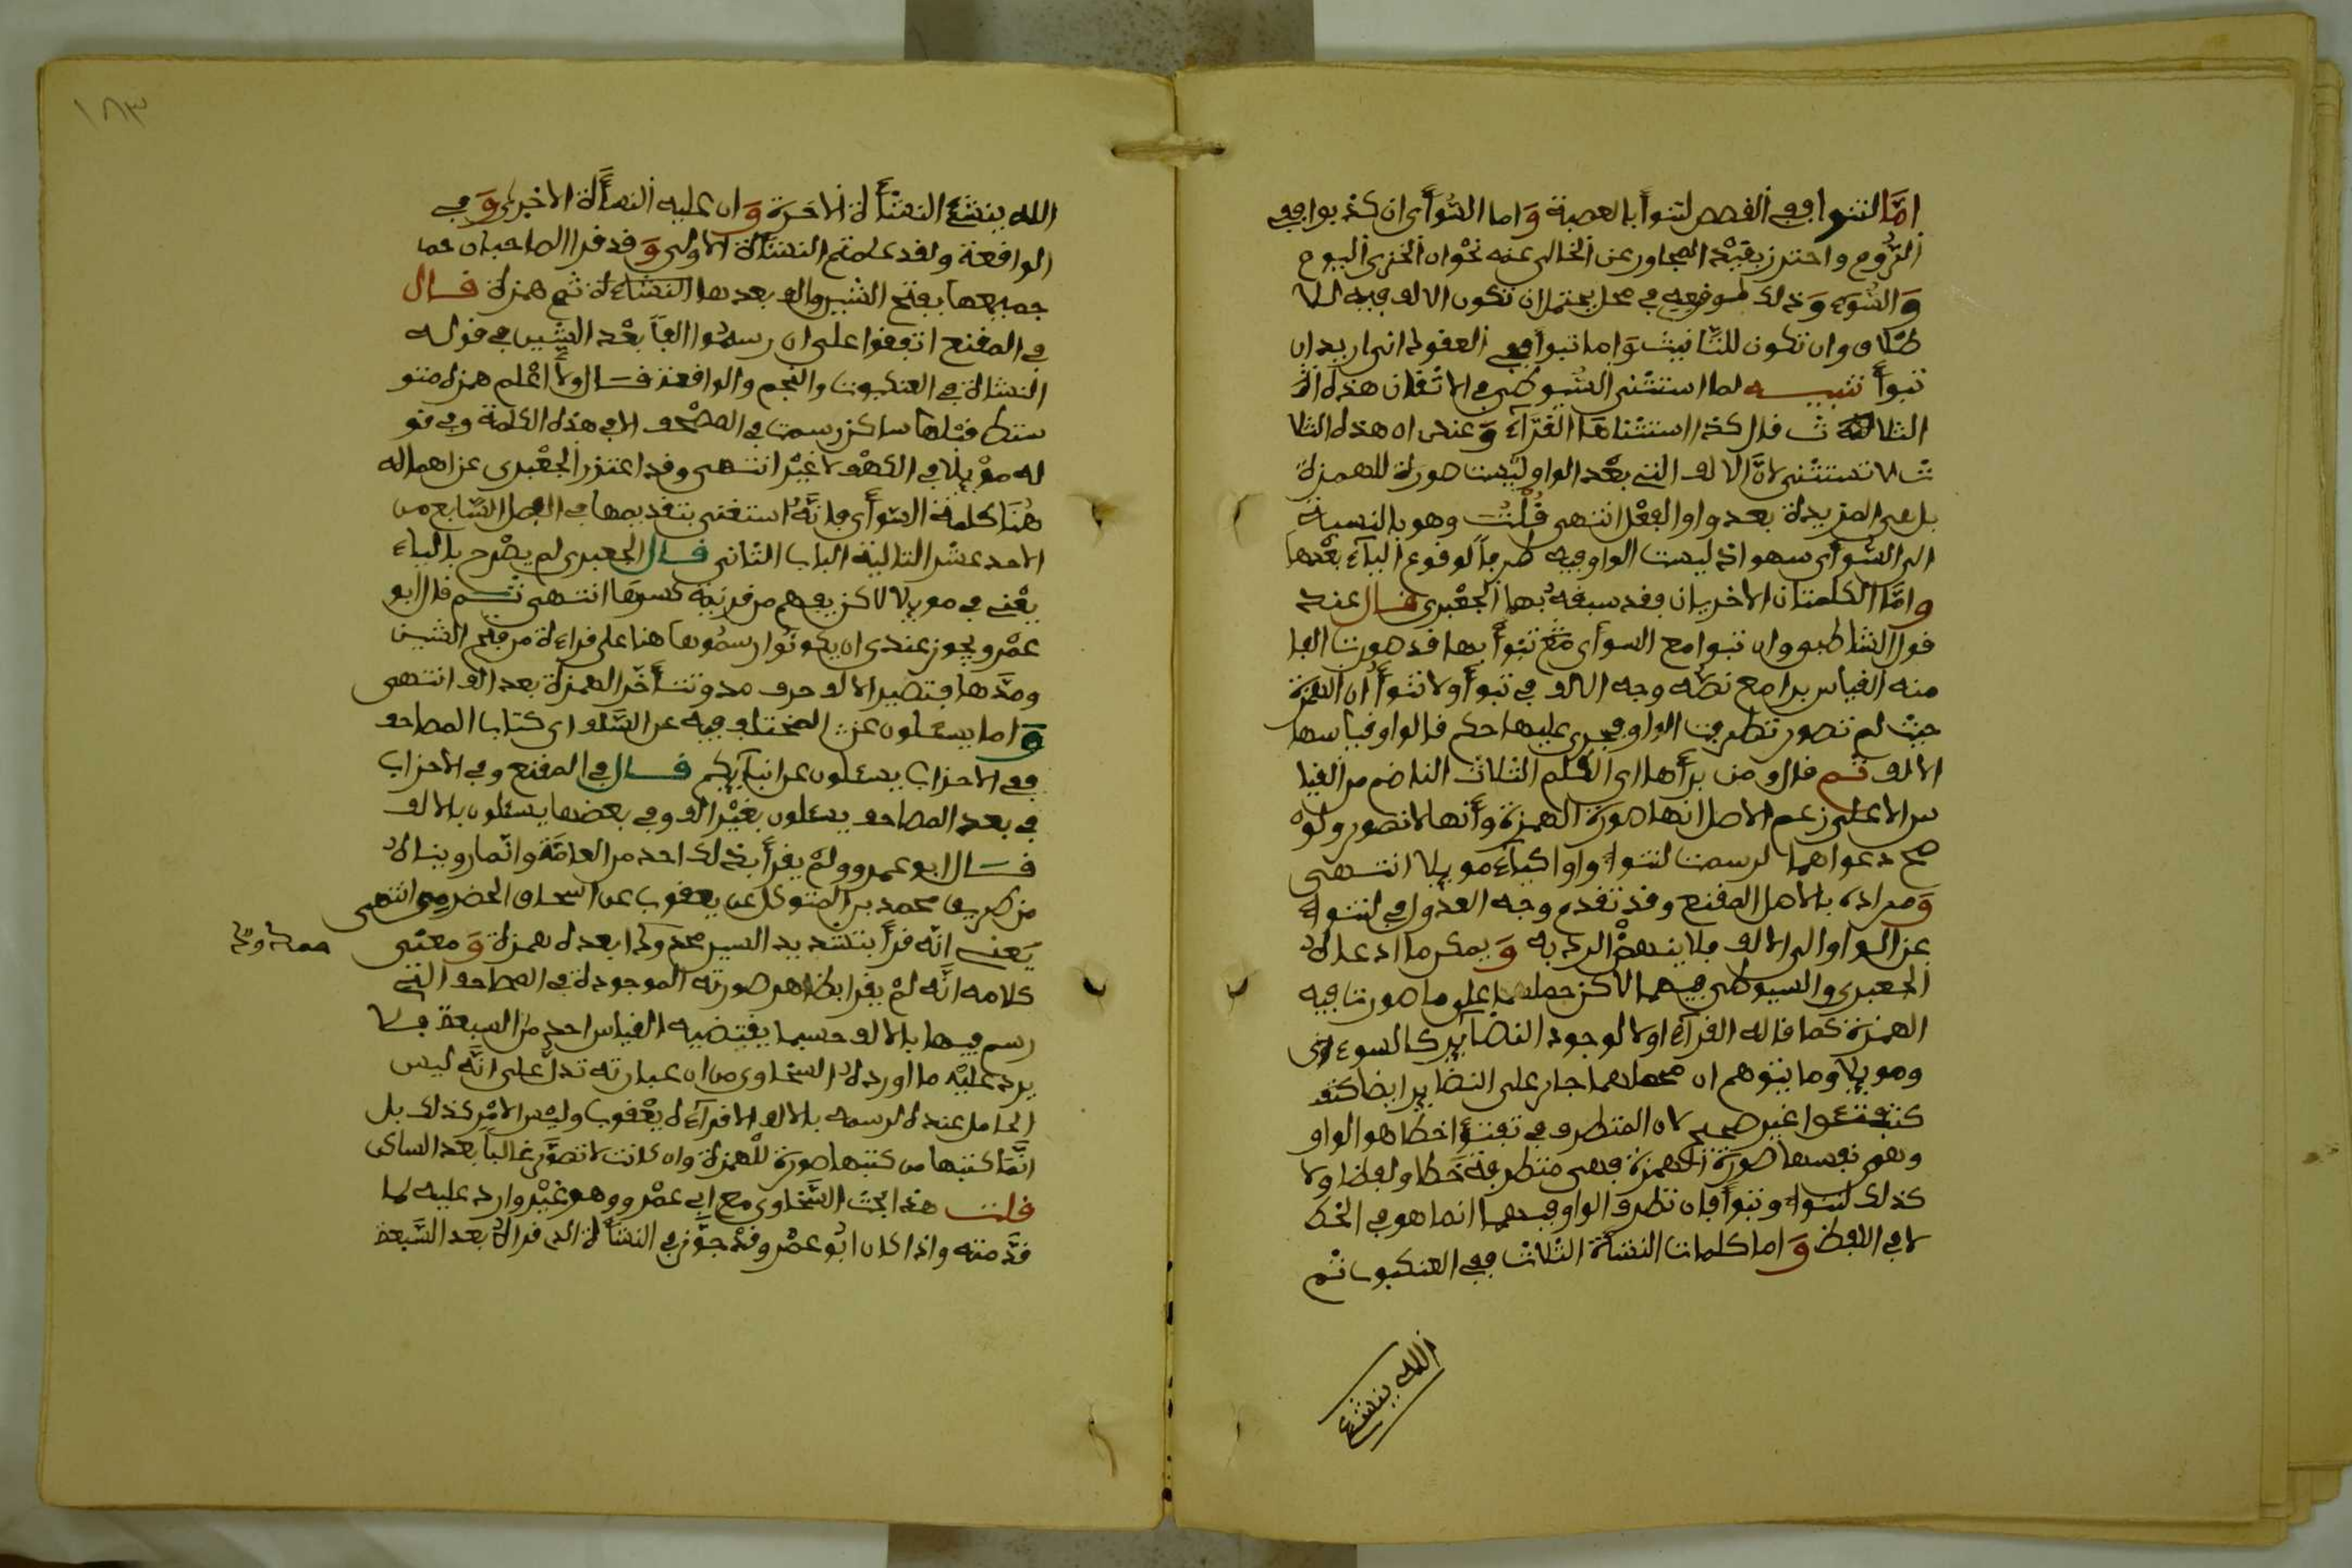 امّا لتنوأ ففي القصص لتنوأ بالعصبة وَاما السُّوأى ان كذبوا ففي
الرُّوم واحترز بقيْد المجاور عن الخالي عنه نحْو ان الخزى اليوم
وَالسُّوء وَذلك لموقعِه في محل يحتمل ان تكون الالف فيه للا
طلاق وان تكون للتّانيث وَاما تبوأ ففي العقود انى اريد ان
تبوأ تنبيه لما استثنى السُّيوطي في الاتقان هذه
الثلاثة قال كذا استثناها القرّآء وَعندى ان هذه الثلا
ث لا تستثنى لانَّ الالف التى بعْد الواو ليْست صورة للهمزة
بل هي المزيدة بعد واو الفعْل انتهى قُلْتُ وهو بالنسبة
الى السّوأى سهو اذ ليست الواو فيه طرفاً لوقوع اليآء بعْدها
وامَّا الكلمتان الاخريان فقد سبقهُ بهما الجعْبرى قال عند
قول الشاطبي وان تبوا مع السوأى مع تنوأ بها قد صورت الفا
منه القياس برا مع نصّه وجه الالف في تبوأ ولا تنوأُ ان الهمزة
حيث لم تصور تطرفت الواو فجرى عليها حكم قالوا وقياسها
الالف ثم قال ومن برأها اى الكلم الثلاث الناضم من القيا
س الا على زعم الاصل انها صورة الهمزة وأنها لا تصور ولوْ
صح دعواهما لرسمت لتنوا واوا كياء مويلا انتهى
وَمراده بالاصل المقنع وقد تقدم وجه العدول في لتنوا
عن الواو الى الالف فلا ينهض الرد به وَيمكن ما ادعاه
الجعبرى والسيوطي فيهما لاكن حملهما على ما صورت فيه
الهمزة كما قاله القرآء اولا لوجود النضآير كالسوء اى
ومويلا وما يتوهم ان محملهما جار على النضاير ايضا كتف
كتفتئوا غير صحيح لان المتطرف في تفتؤا خطا هو الواو
وهي نفسها صورة الهمزة فهى متطرفة خطا ولفظا ولا
كذلك لتنوا وتبوأ فان تطرف الواو فيهما انما هو في الخط
لا في اللفظ وَاما كلمات النشأة الثلاث ففي العنكبوت ثم
الله ينشئ
١٨٣
الله ينشئ النشأة الاخرة وَان عليه النشأة الاخرى وَفي
الواقعة ولقد علمتم النشأة الاولى وَقد قرا الصاحبان
جميعها بفتح الشين والف بعدها النشاءة ثم همزة قال
في المقنع اتفقوا على ان رسمُوا الفاً بعْد الشين في قوله
النشاة في العنكبوت والنجم والواقعة قال ولا أعْلم همزة متو
سطا قبْلها ساكن رسمت في المصْحف الا في هذه الكلمة وفي قو
له موْيلا في الكهْف لا غيْر انتهى وقد اعتذر الجعْبرى عن اهماله
هُنَا كلمة السّوأى فانَّهُ استغنى بتقديمها في الفصل السّابع من
الاحد عشر التالية الباب الثانى قال الجعبرى لم يصْرح بالياء
يعْنى في مويلا لاكن يفهم من قرينة كسرها انتهى ثم قال ابو
عمْرو ويجوز عندى ان يكونُوا رسمُوها هنا على قراءة من فتح الشين
ومدَّها فتصير الالف حرف مد وتتأخّر الهمزة بعد الف انتهى
وَاما يسئلون عن المختلف فيه عن السَّلف اى كتاب المصاحف
ففي الاحزاب يسئلون عن انبآيكم قال في المقنع وفي الاحزاب
في بعد المصاحف يسئلون بغيْر الف وفي بعضها يسئلون بالالف
قال ابو عمرو ولمْ يقرأ بذلك احد من العامَّة وانّما رويناهُ
من طريق محمد بن المتوكل عن يعقوب عن اسحاق الحضرمي انتهى
يَعنى انَّه قرأ بتشديد السين ممدودا بعده همزة وَمعنى
كلامه انَّه لمْ يقرا بظاهر صورته الموجودة في المصاحف التى
رسم فيها بالالف حسبما يقتضيه القياس احد من السبعة فلا
يرد عليْه ما اورده السخاوى من ان عبارته تدل على انَّه ليس
الحامل عنده لرسمه بالالف الا قرآءة يعْقوب وليْس الامْر كذلك بل
انّما كتبها من كتبها صورة للْهمزة وان كانت لا تصوَّر غالباً بعد الساكن
قلت هذا بحث السَّخاوى مع ابي عمْرو وهو غيْر وارد عليه لما
قدَّمته واذا كان ابُو عمْرو قدْ جوَّز في النشأة الذى قراهُ بعد السَّبعة